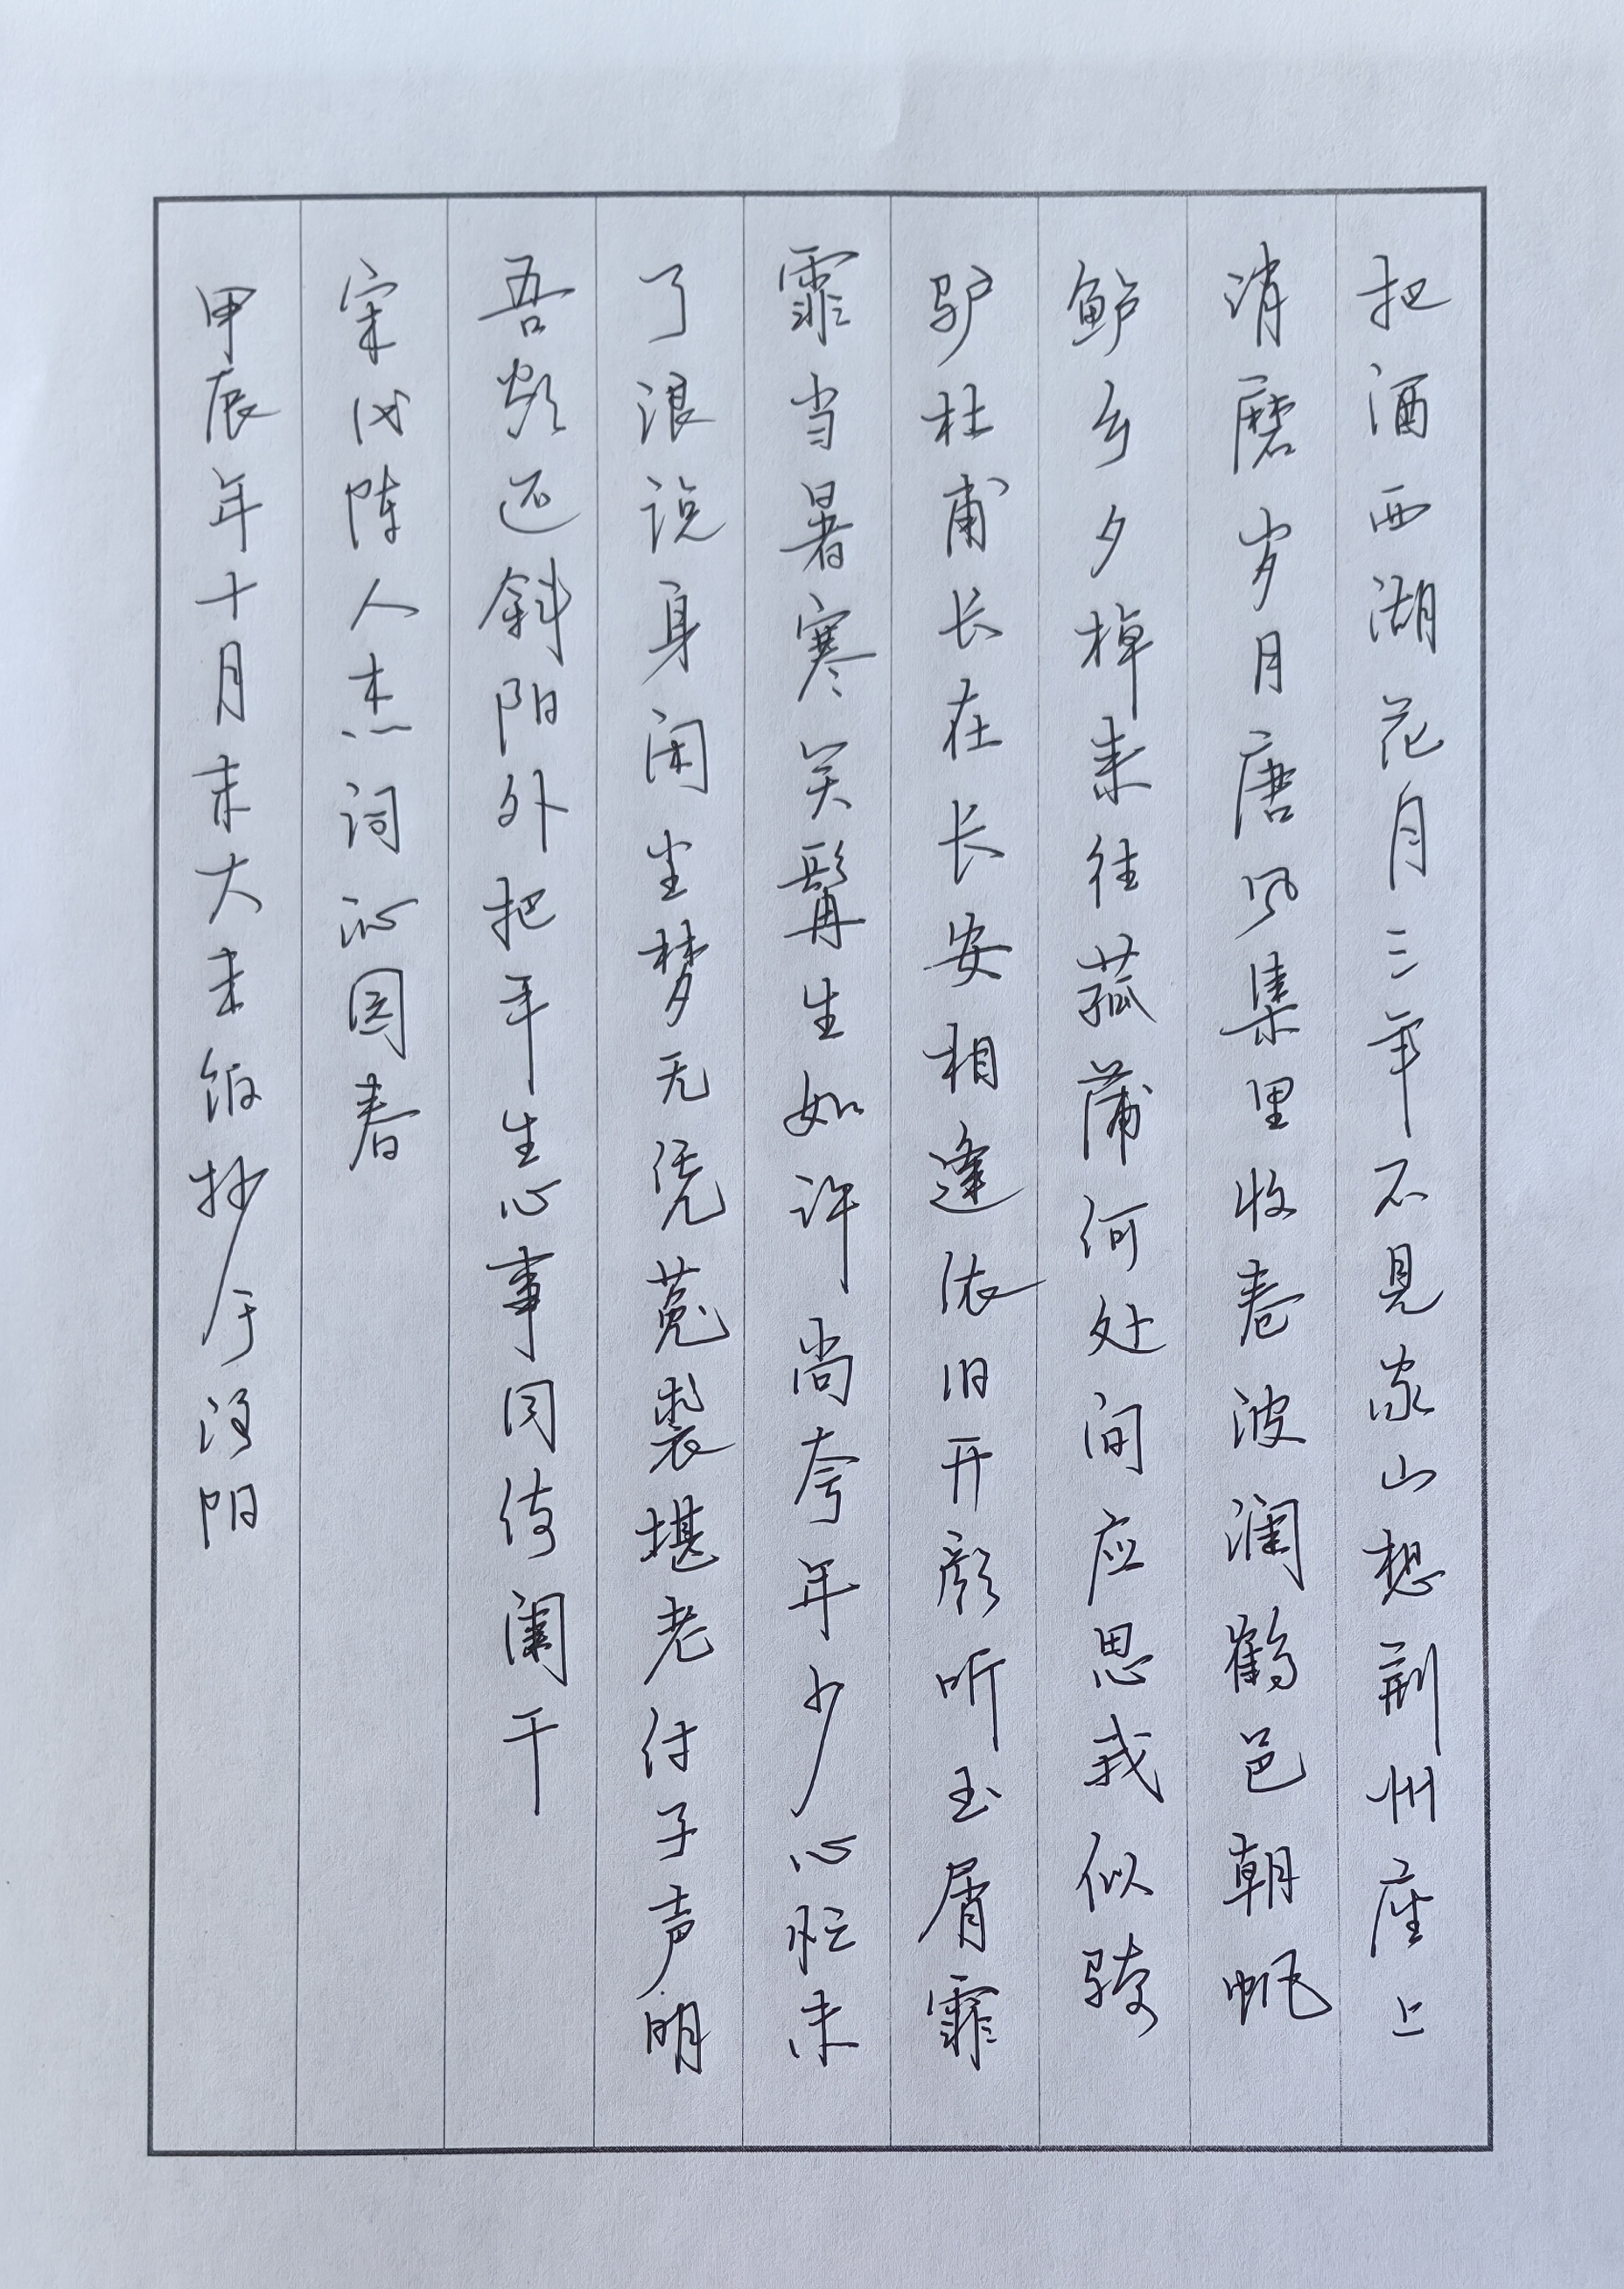 把酒西湖花月三年不见家山想荆州座上
消磨岁月唐风集里收卷波澜鹤邑朝帆
鲈乡夕棹来往菰蒲何处间应思我似骑
驴杜甫长在长安相逢依旧开颜听玉屑霏
霏当暑寒笑髯生如许尚夸年少心肛未
了浪说身闲尘梦无凭菟裘堪老付子声明
吾欲还斜阳外把平生心事同倚阑干
宋代陈人杰词沁园春
甲辰年十月末大未伯抄于沔阳